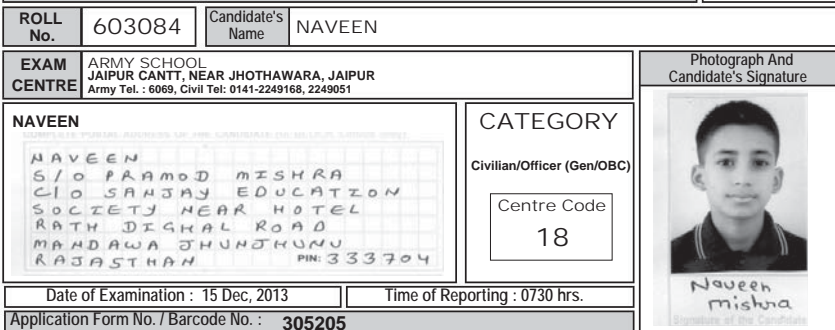 ROLL No. 603084 Candidate's Name NAVEEN
EXAM CENTRE ARMY SCHOOL
JAIPUR CANTT, NEAR JHOTHAWARA, JAIPUR
Army Tel. : 6069, Civil Tel: 0141-2249168, 2249051
Photograph And
Candidate's Signature
NAVEEN
NAVEEN
S/O PRAMOD MISHRA
C/O SANJAY EDUCATION
SOCIETY NEAR HOTEL
RATH DIGHAL ROAD
MANDAWA JHUNJHUNU
RAJASTHAN PIN: 333704
CATEGORY
Civilian/Officer (Gen/OBC)
Centre Code
18
Naveen
mishra
Signature of the Candidate
Date of Examination : 15 Dec, 2013 Time of Reporting : 0730 hrs.
Application Form No. / Barcode No. : 305205